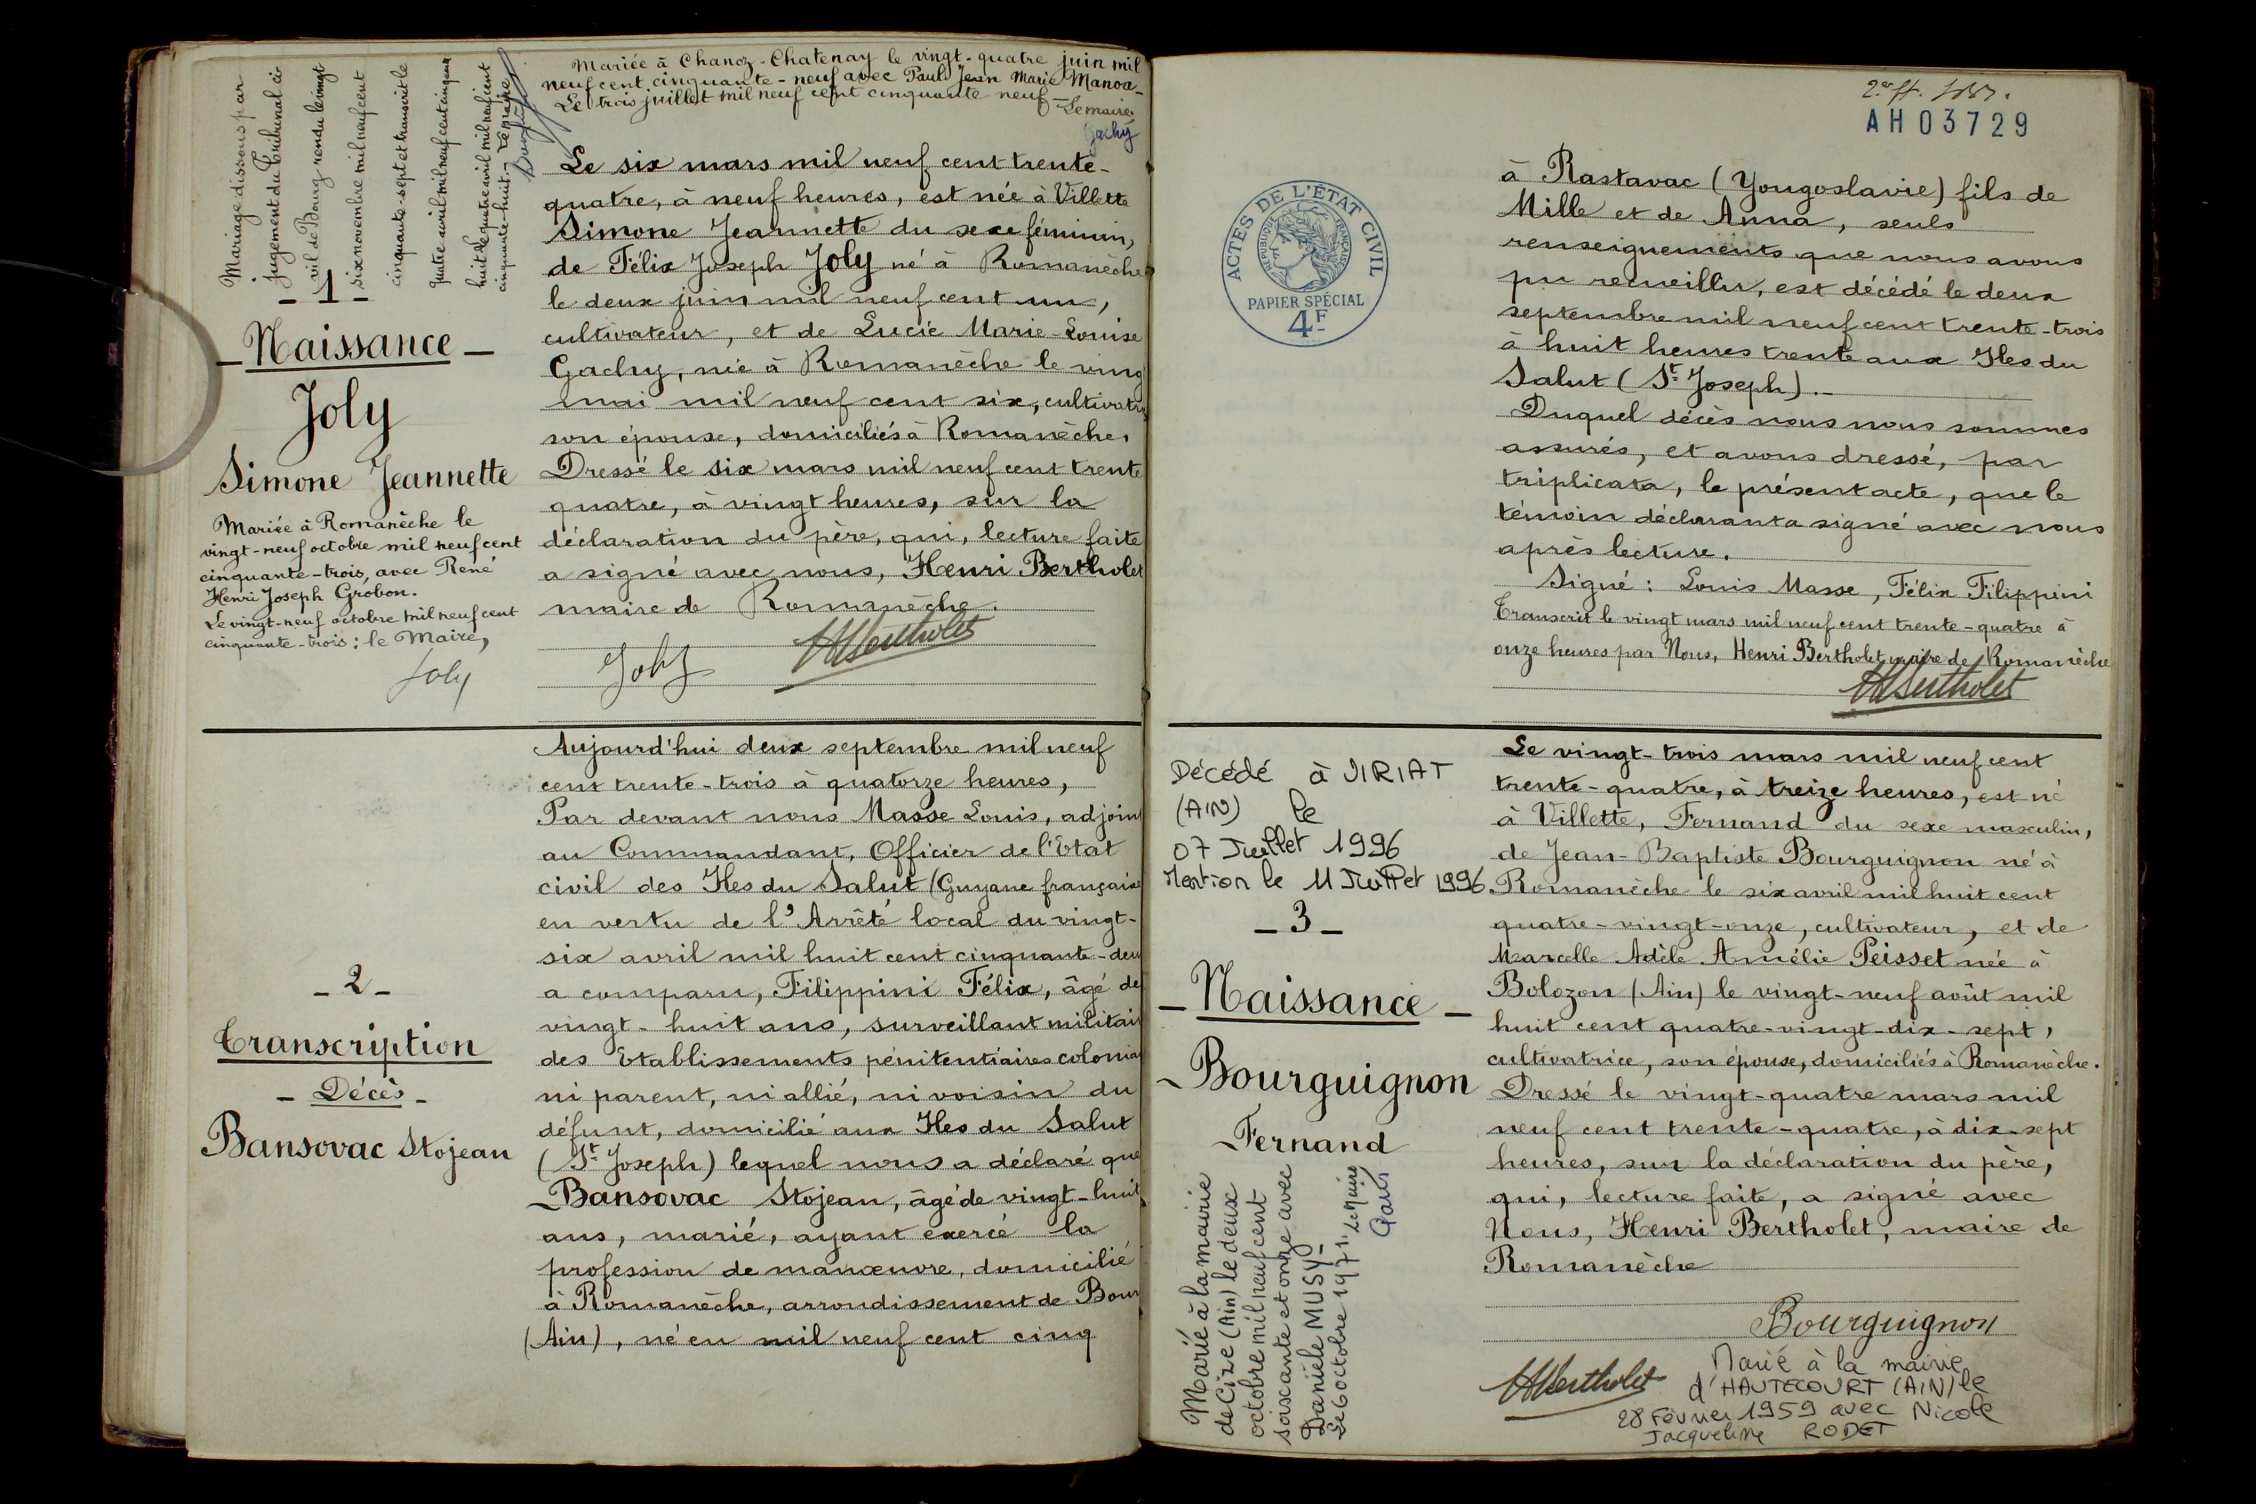 Mariage dissous par
jugement du Tribunal ci-
vil de Bourg rendu le vingt
six novembre mil neuf cent
cinquante-sept et transcrit le
quatre avril mil neuf cent cinquante
huit. Le quatre avril mil neuf cent
cinquante-huit - Le maire,
- 1 -
- Naissance -
Joly
Simone Jeannette
Mariée à Romanèche le
vingt-neuf octobre mil neuf cent
cinquante-trois, avec René
Henri Joseph Grobon.
Le vingt-neuf octobre mil neuf cent
cinquante-trois : le Maire,
Joly
Mariée à Chanoz-Chatenay le vingt-quatre juin mil
neuf cent cinquante-neuf avec Paul Jean Marie
Le trois juillet mil neuf cent cinquante neuf - Le maire.
Gachy
Le six mars mil neuf cent trente-
quatre, à neuf heures, est née à Villette
Simone Jeannette du sexe féminin,
de Félix Joseph Joly né à Romanèche
le deux juin mil neuf cent un,
cultivateur, et de Lucie Marie-Louise
Gachy, née à Romanèche le ving
mai mil neuf cent six, cultivatri
son épouse, domiciliés à Romanèche.
Dressé le six mars mil neuf cent trente
quatre, à vingt heures, sur la
déclaration du père, qui, lecture faite
a signé avec nous, Henri Bertholet
maire de Romanèche.
Joly HBertholet
- 2 -
Transcription
- Décès -
Bansovac Stojean
Aujourd'hui deux septembre mil neuf
cent trente-trois à quatorze heures,
Par devant nous Masse Louis, adjoin
au Commandant, Officier de l'Etat
civil des Iles du Salut (Guyane française
en vertu de l'Arrêté local du vingt-
six avril mil huit cent cinquante-deu
a comparu, Filippini Félix, âgé de
vingt-huit ans, surveillant militair
des Etablissements pénitentiaires colonia
ni parent, ni allié, ni voisin du
défunt, domicilié aux Iles du Salut
(St Joseph) lequel nous a déclaré que
- Bansovac Stojean, âgé de vingt-huit
ans, marié, ayant exercé la
profession de manœuvre, domicilié
à Romanèche, arrondissement de Bour
(Ain), né en mil neuf cent cinq
AH03729
ACTES DE L'ÉTAT CIVIL
RÉPUBLIQUE FRANÇAISE
PAPIER SPÉCIAL
4F
à Rastavac (Yougoslavie) fils de
Mille et de Anna, seuls
renseignements que nous avons
pu recueillir, est décédé le deux
septembre mil neuf cent trente-trois
à huit heures trente aux Iles du
Salut (St Joseph). -
Duquel décès nous nous sommes
assurés, et avons dressé, par
triplicata, le présent acte, que le
témoin déclarant a signé avec nous
après lecture.
Signé : Louis Masse, Félix Filippini
Transcrit le vingt mars mil neuf cent trente-quatre à
onze heures par Nous, Henri Bertholet maire de Romanèche
HBertholet
Décédé à VIRIAT
(AIN) le
07 Juillet 1996
Mention le 11 Juillet 1996
- 3 -
- Naissance -
- Bourguignon
- Fernand
Marié à la mairie
de Cize (Ain) le deux
octobre mil neuf cent
soixante et onze avec
Danièle MUSY -
Le 6 octobre 1971. Le Maire
Le vingt-trois mars mil neuf cent
trente-quatre, à treize heures, est né
à Villette, Fernand du sexe masculin,
de Jean-Baptiste Bourguignon né à
Romanèche le six avril mil huit cent
quatre-vingt-onze, cultivateur, et de
Marcelle Adèle Amélie Peisset née à
Bolozon (Ain) le vingt-neuf août mil
huit cent quatre-vingt-dix-sept,
cultivatrice, son épouse, domiciliés à Romanèche.
Dressé le vingt-quatre mars mil
neuf cent trente-quatre, à dix-sept
heures, sur la déclaration du père,
qui, lecture faite, a signé avec
Nous, Henri Bertholet, maire de
Romanèche
Bourguignon
HBertholet
Marié à la mairie
d'HAUTECOURT (AIN) le
28 Février 1959 avec Nicole
Jacqueline RODET